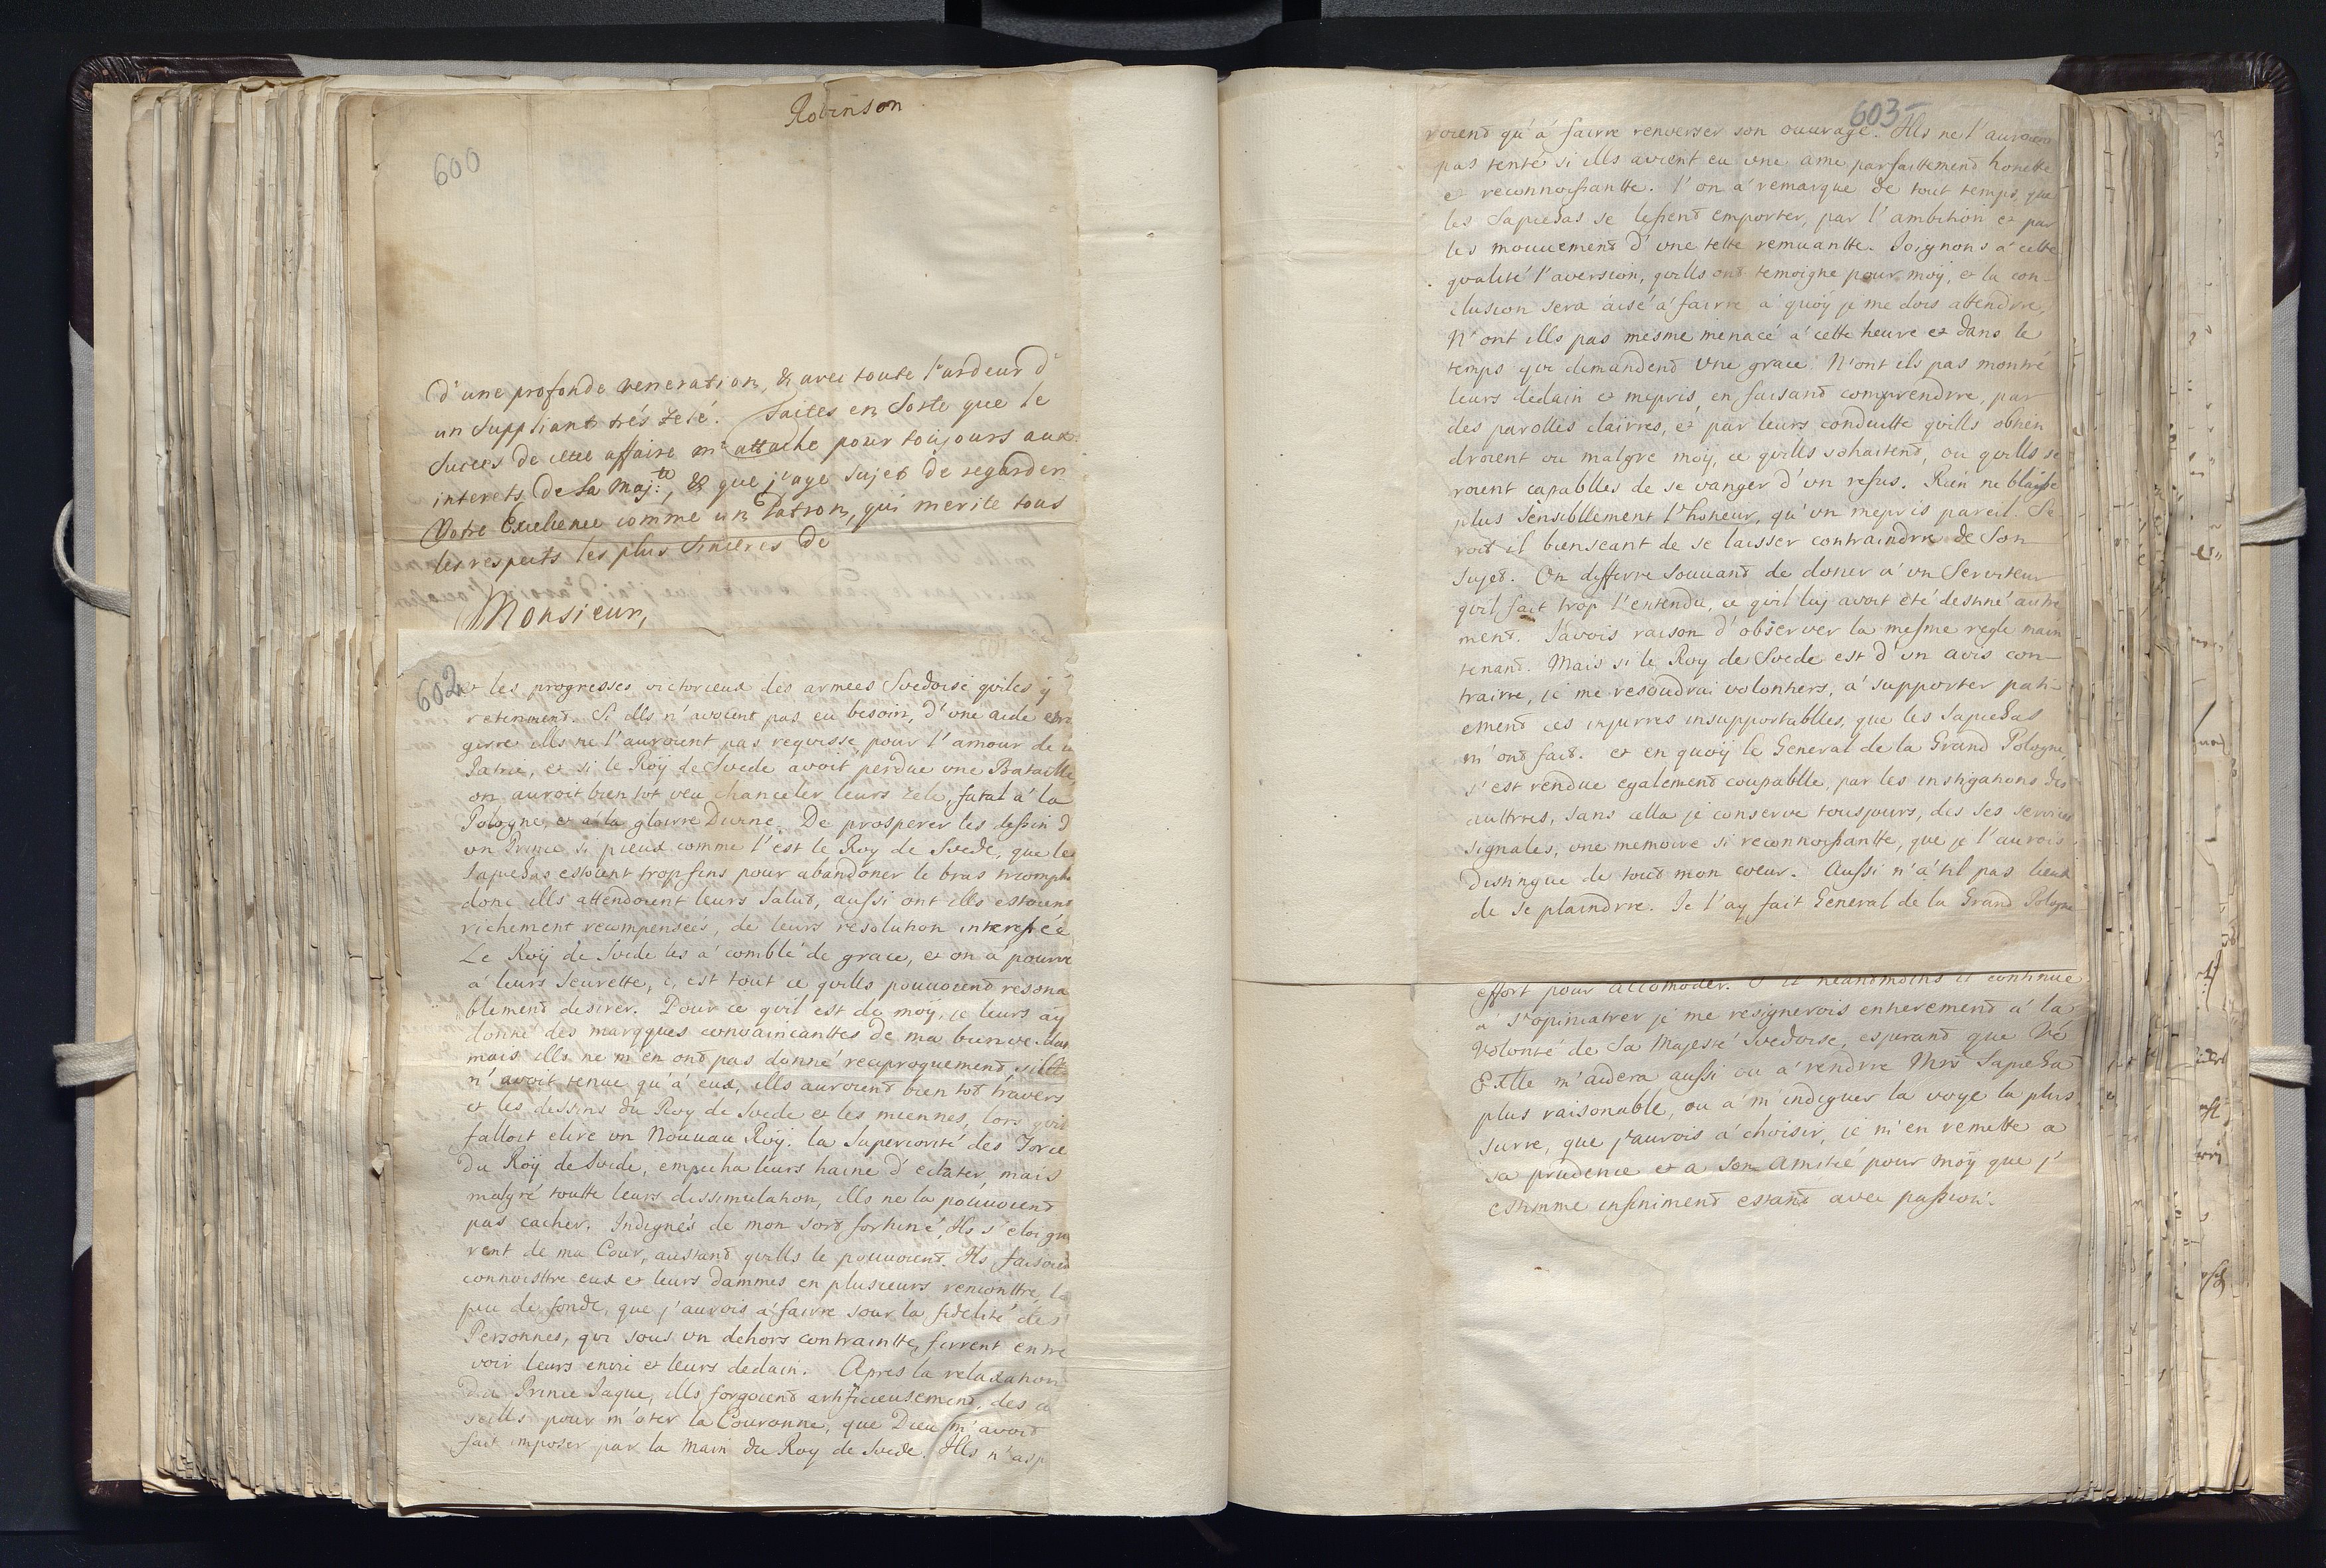 Robinson
600
d'une profonde veneration, & avec toute l'ardeur d'
un suppliant trés zelé. Faites en sorte que le
succes de cette affaire m'attache pour toujours aux
interets de sa Maj:te, & que j'aye sujet de regarder
Votre Excellence comme un Patron, qui merite tous
les respects les plus sinceres de
Monsieur,
602
et les progresses victorieux des armees Svedoise qviles ÿ
retenoient. Si ills n'avoient pas eu besoin, d'une aide
gerre ills ne l'auroient pas requisse pour l'amour de
Patrie, et si le Roÿ de Svede avoit perdue une Bataille
on auroit bien tot veu chanceler leurs zele, fatal á la
Pologne, et a la gloirre Durne. De prosperer les dessin d
un Prince si pieux comme l'est le Roy de Svede, que les
Sapiehas estoient trop fins pour abandoner le bras triomph
donc ills attendoient leurs salut, aussi ont ills estoient
richement recompenseés, de leurs resolution interessée
Le Roÿ de Svede les a' comblé de grace, et on a pourve
á leurs seurette, c'est tout ce qvills pouvoiend resona
blemend desirer. Pour ce qvil est de moÿ, je leurs aÿ
donné des marqques convaincanttes de ma bienve
mais ills ne m'en ond pas donné reciproquemend,
n'avoit tenue qu'á eux, ills auroiend bien tod travers
et les dessins du Roy de Svede et les miennes, lors qvil
falloit elire un Nouvau Roÿ. la Superiorité des Force
du Roÿ de Svede, empecha leurs haine d'eclater, mais
malgré toutte leurs dissimulation, ills ne la pouvoiend
pas cacher. Indignés de mon sord fortuné, Ils s'eloigne
rent de ma Cour, austand qvills le pouvoiend. Ils faisoied
connoisttre eux et leurs dammes en plusieurs renconttre, le
peu de fonde, que j'aurois a' fairre sour la fidelité des
Personnes, qvi sous un dehors contraintte, firrent entre
voir leurs envi et leurs dedain. Apres la relaxation
du Prince Jaque, ills forgoiend artificieusemend, des
seills pour m'oter la Couronne, que Dieu m'avoid
fait imposer par la main du Roy de Svede. Ills n'asp
603
roiend qu'á fairre renverser son ouvrage. Ills ne l'auroien
pas tenté si ills avoient eu une ame parfaittemend honette
et reconnoissantte. l'on á remarque de tout temps, que
les Sapiehas se lessend emporter, par l'ambition et par
les mouvemend d'une tette remuantte. Joignons á cette
qvalité l'aversion, qvills ond temoigne pour moÿ, et la con-
clusion sera áisé á fairre a quoÿ je me dois attendrre,
N'ont ills pas mesme menacé á cette heure et dans le
temps qvi demandend une grace. N'ont ils pas montré
leurs dedain et mepris, en faisand comprendrre, par
des parolles clairres, et par leurs conduitte qvills obtien
droient ou malgré moÿ, ce qvills sohaitend, ou qvills se
roient capablles de se vanger d'un refus. Rien ne blaisse
plus sensibllement l'honeur, qu'un mepris pareil. Se
roit il bienseant de se laisser contraindre de son
sujed. On differre souvand de doner á un Serviteur
qvil fait trop l'entendu, ce qvil luj avoit eté destiné autre
ment. J'avois raison d'observer la mesme regle main
tenand. Mais si le Roy de Svede est d'un avis con-
trairre, je me resoudrai volontiers, á supporter pati-
emend ces injurres insupportablles, que les Sapiehas
m'ond faid. et en quoÿ le General de la Grand Pologne
s'est rendue egalemend coupablle, par les instigations des
aulttres, Sans cella je conserve tousjours, des ses services
signales, une memoire si reconnoissantte, que je l'aurois
distingue de toud mon coeur. Aussi n'á til pas lieux
de se plaindrre. Je l'ay fait General de la Grand Pologne
effort pour accomoder. S'il neandmoins il continue
a' s'opiniatrer je me resignerois entieremend á la
Volonté de Sa Majesté Svedoise, esperand que Vé
Extte m'aidera aussi ou á rendrre Mrs Sapieha
plus raisonable, ou á m'indiquer la voye la plus
surre, que j'aurois á choisir, je m'en remette a
sa prudence et a son Amitié pour moÿ que j'
estimme infinimend estand avec passion.